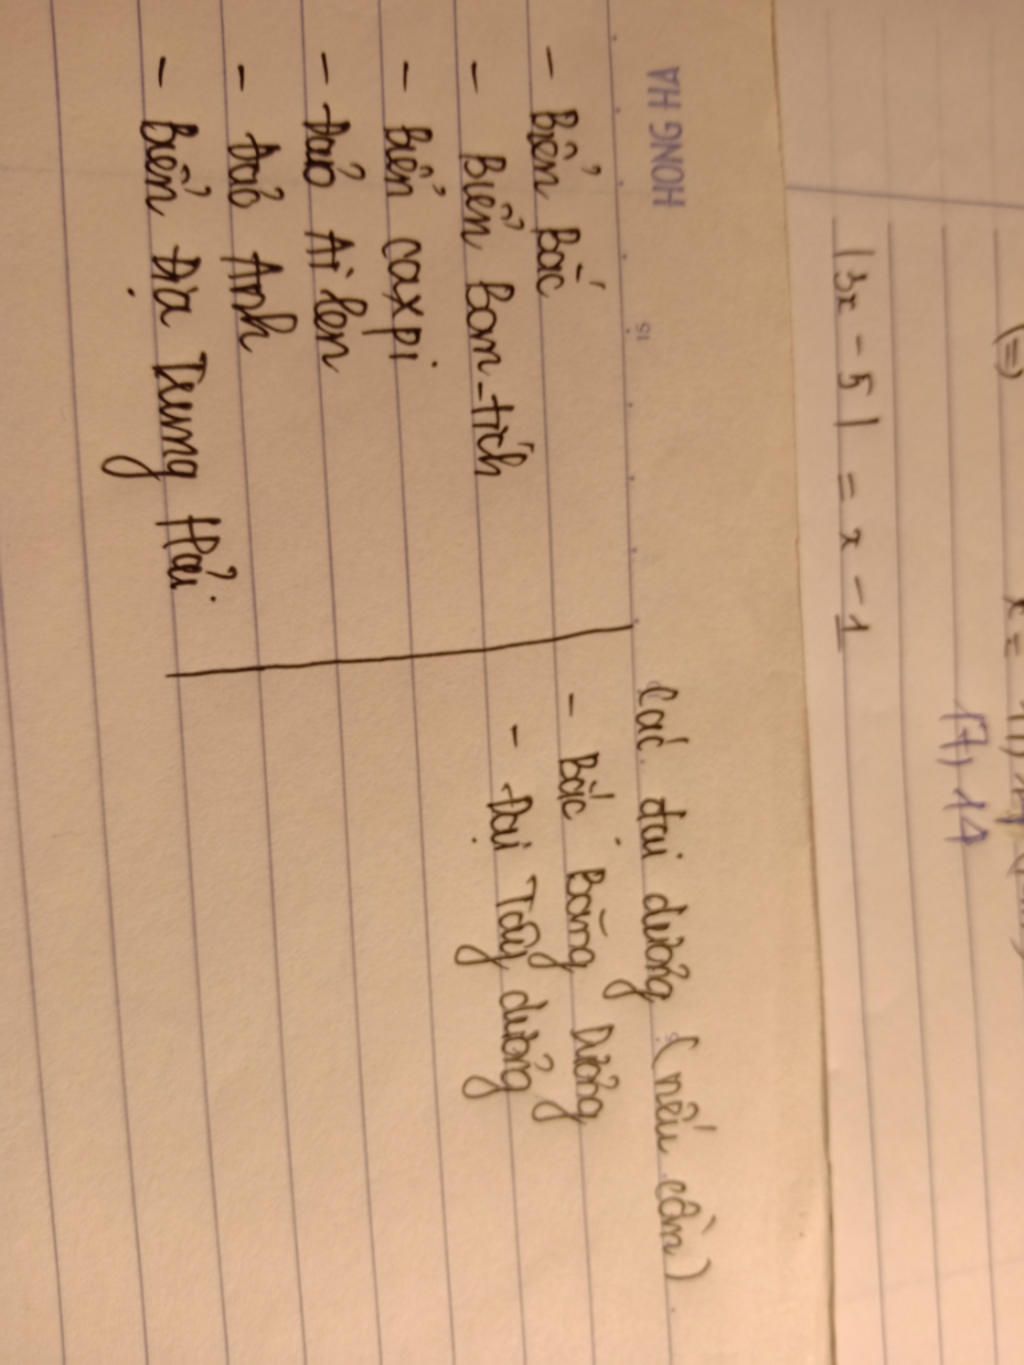 (=)
x =
17, 14
|3x - 5| = x - 1
HONG HA
15
Các đại dương (nếu cần)
- Biển Bắc
- Biển Ban-tích
- Biển caxpi
- Đảo Ai len
- Đảo Anh
- Biển Địa Trung Hải
- Bắc Băng Dương
- Đại Tây dương